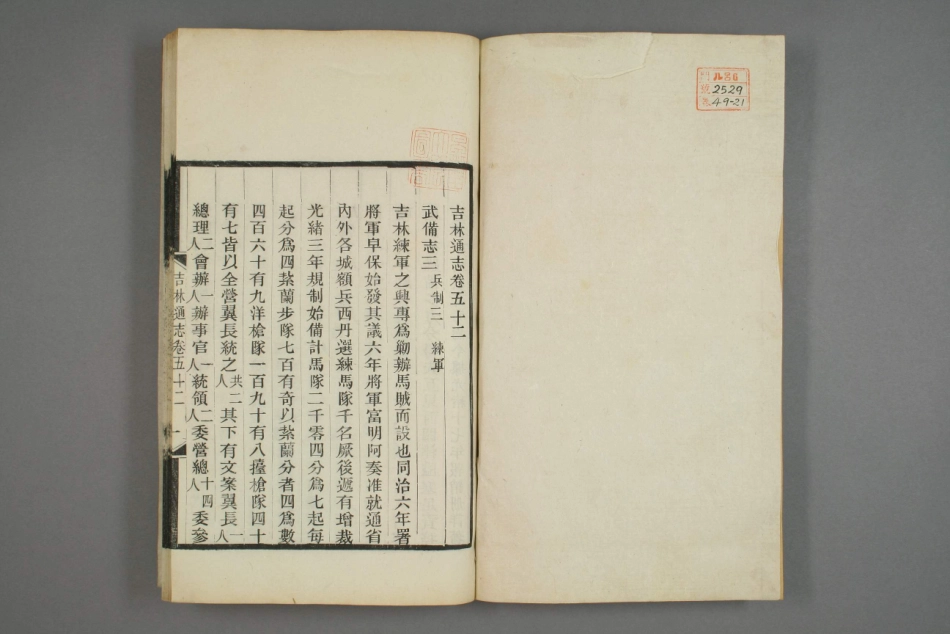 ル506
2529
49-21
吉林通志卷五十二
武備志三 兵制三 練軍
吉林練軍之興專爲勦辦馬賊而設也同治六年署
將軍阜保始發其議六年將軍富明阿奏准就通省
內外各城額兵西丹選練馬隊千名厥後遞有增裁
光緒三年規制始備計馬隊二千零四分爲七起每
起分爲四紮蘭步隊七百有奇以紮蘭分者四爲數
四百六十有九洋槍隊一百九十有八擡槍隊四十
有七皆以全營翼長統之共二人其下有文案翼長一人
總理二人會辦一人辦事官一人統領二人委營總十四人委參
吉林通志卷五十二 一